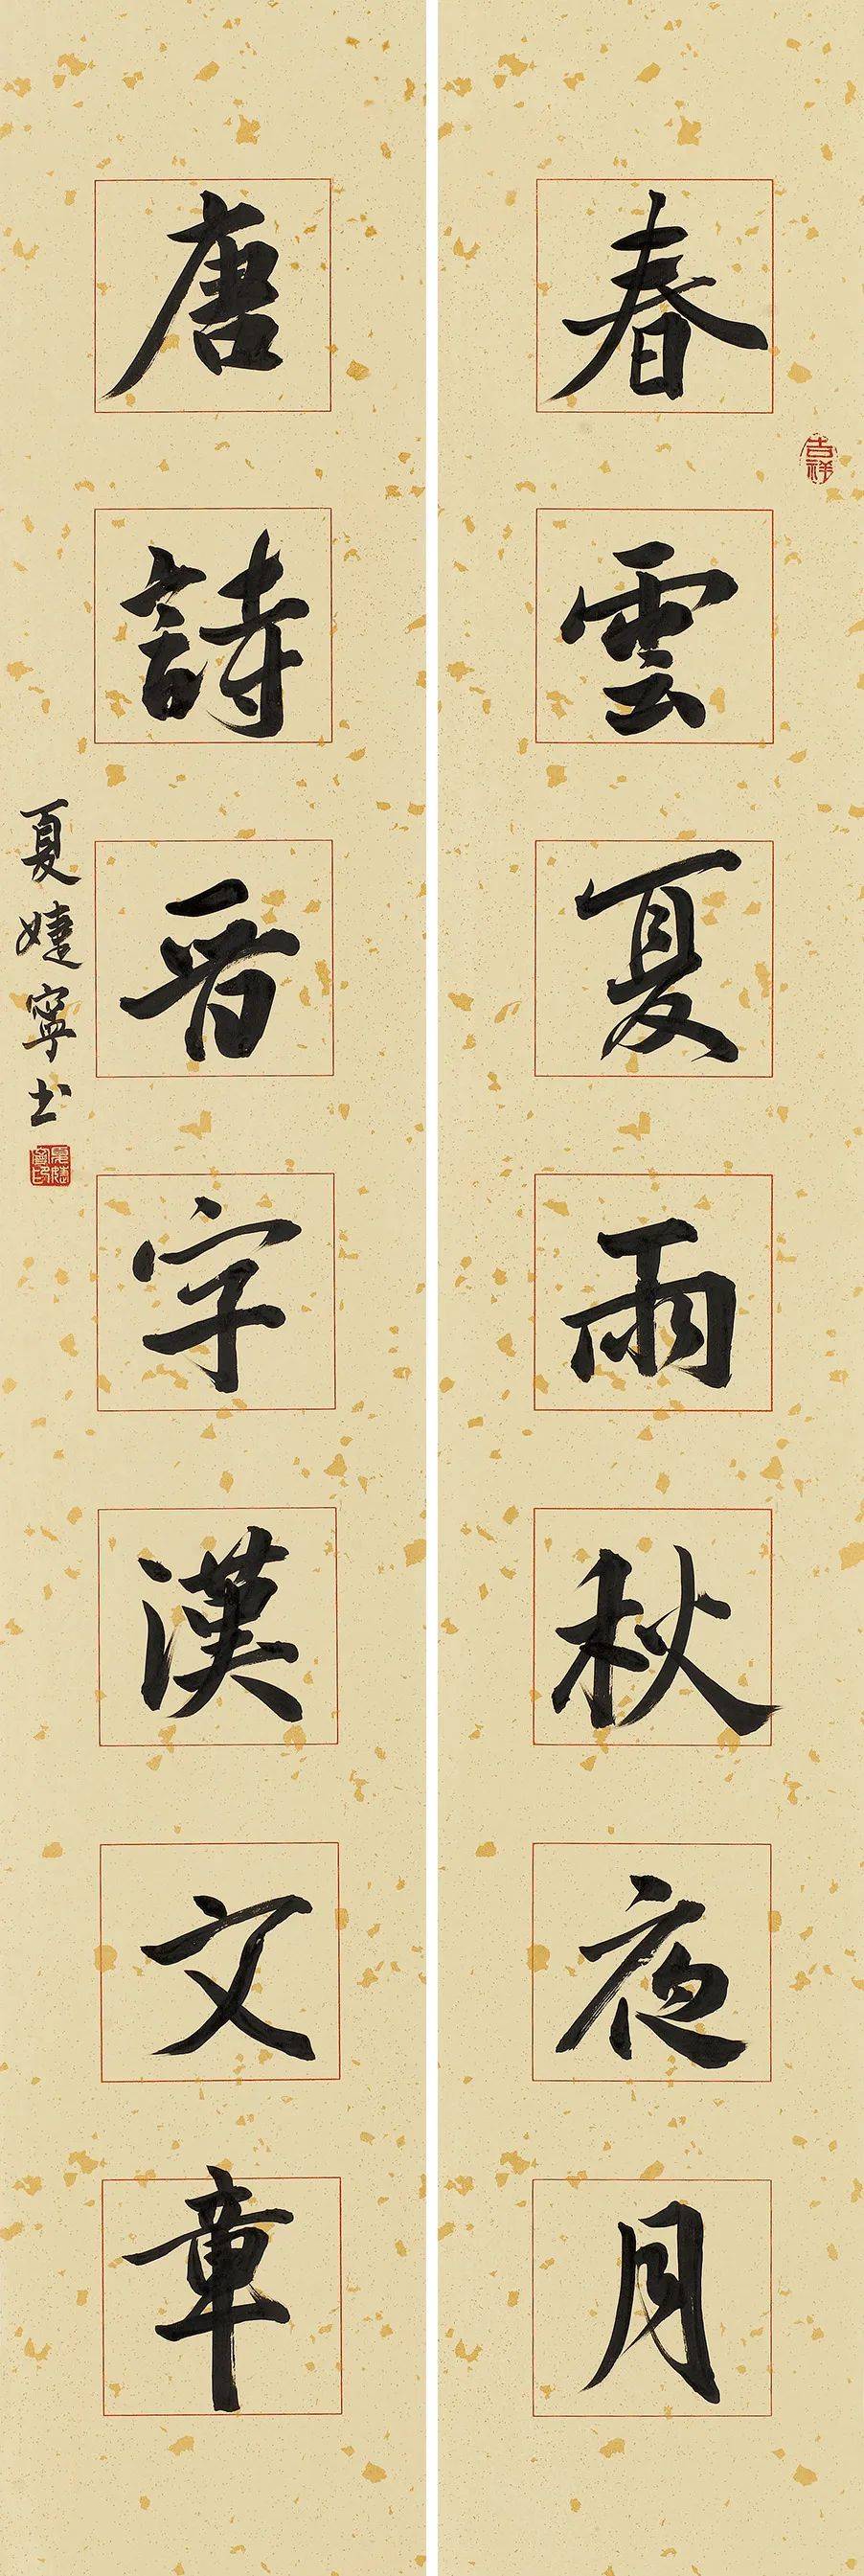 春雲夏雨秋夜月
吉祥
唐詩晉字漢文章
夏婕寧书